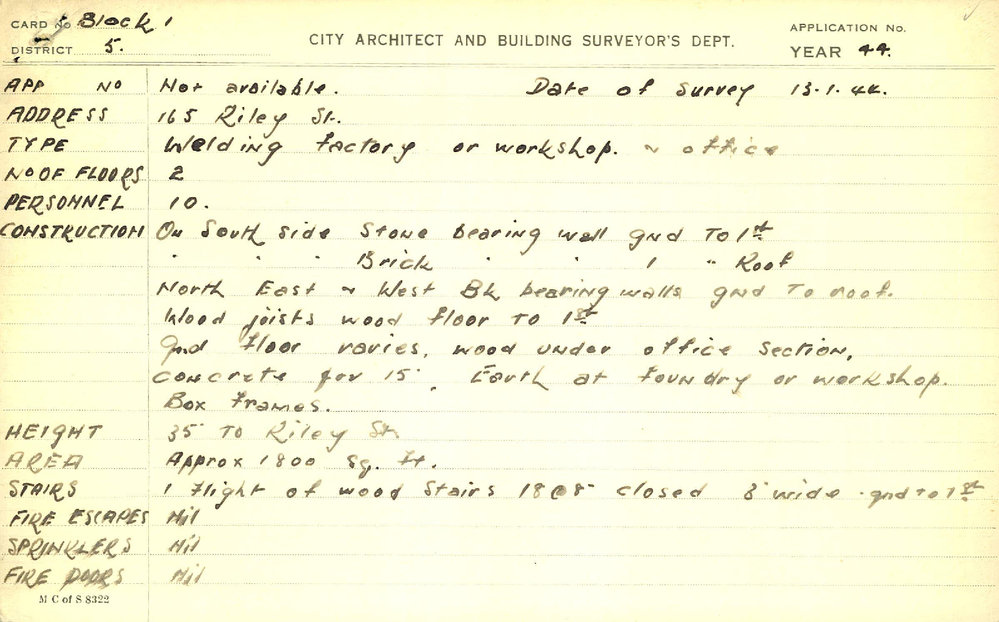 CARD No Block 1
DISTRICT 5.
CITY ARCHITECT AND BUILDING SURVEYOR'S DEPT.
APPLICATION No.
YEAR 44.
APP No Not available. Date of Survey 13.1.44.
ADDRESS 165 Riley St.
TYPE Welding Factory or workshop. & office
NO OF FLOORS 2
PERSONNEL 10.
CONSTRUCTION On South side Stone bearing wall gnd To 1st
" " " Brick " " 1 " Roof
North East & West Bk bearing walls gnd To roof.
Wood joists wood floor To 1st
Gnd floor varies, wood under office section,
concrete for 15'. Earth at foundry or workshop.
Box Frames.
HEIGHT 35' To Riley St.
AREA Approx 1800 Sq. Ft.
STAIRS 1 Flight of wood Stairs closed 3' wide gnd to 1st
FIRE ESCAPES Nil
SPRINKLERS Nil
FIRE DOORS Nil
M C of S 8322